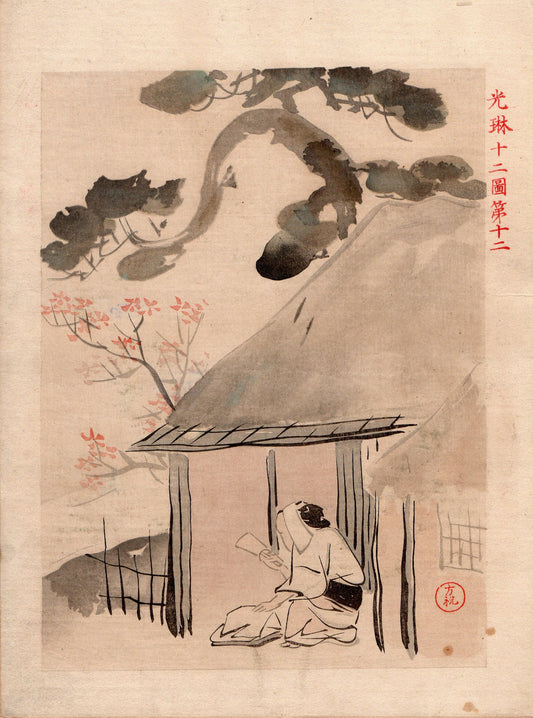 光琳十二圖第十二
方祝